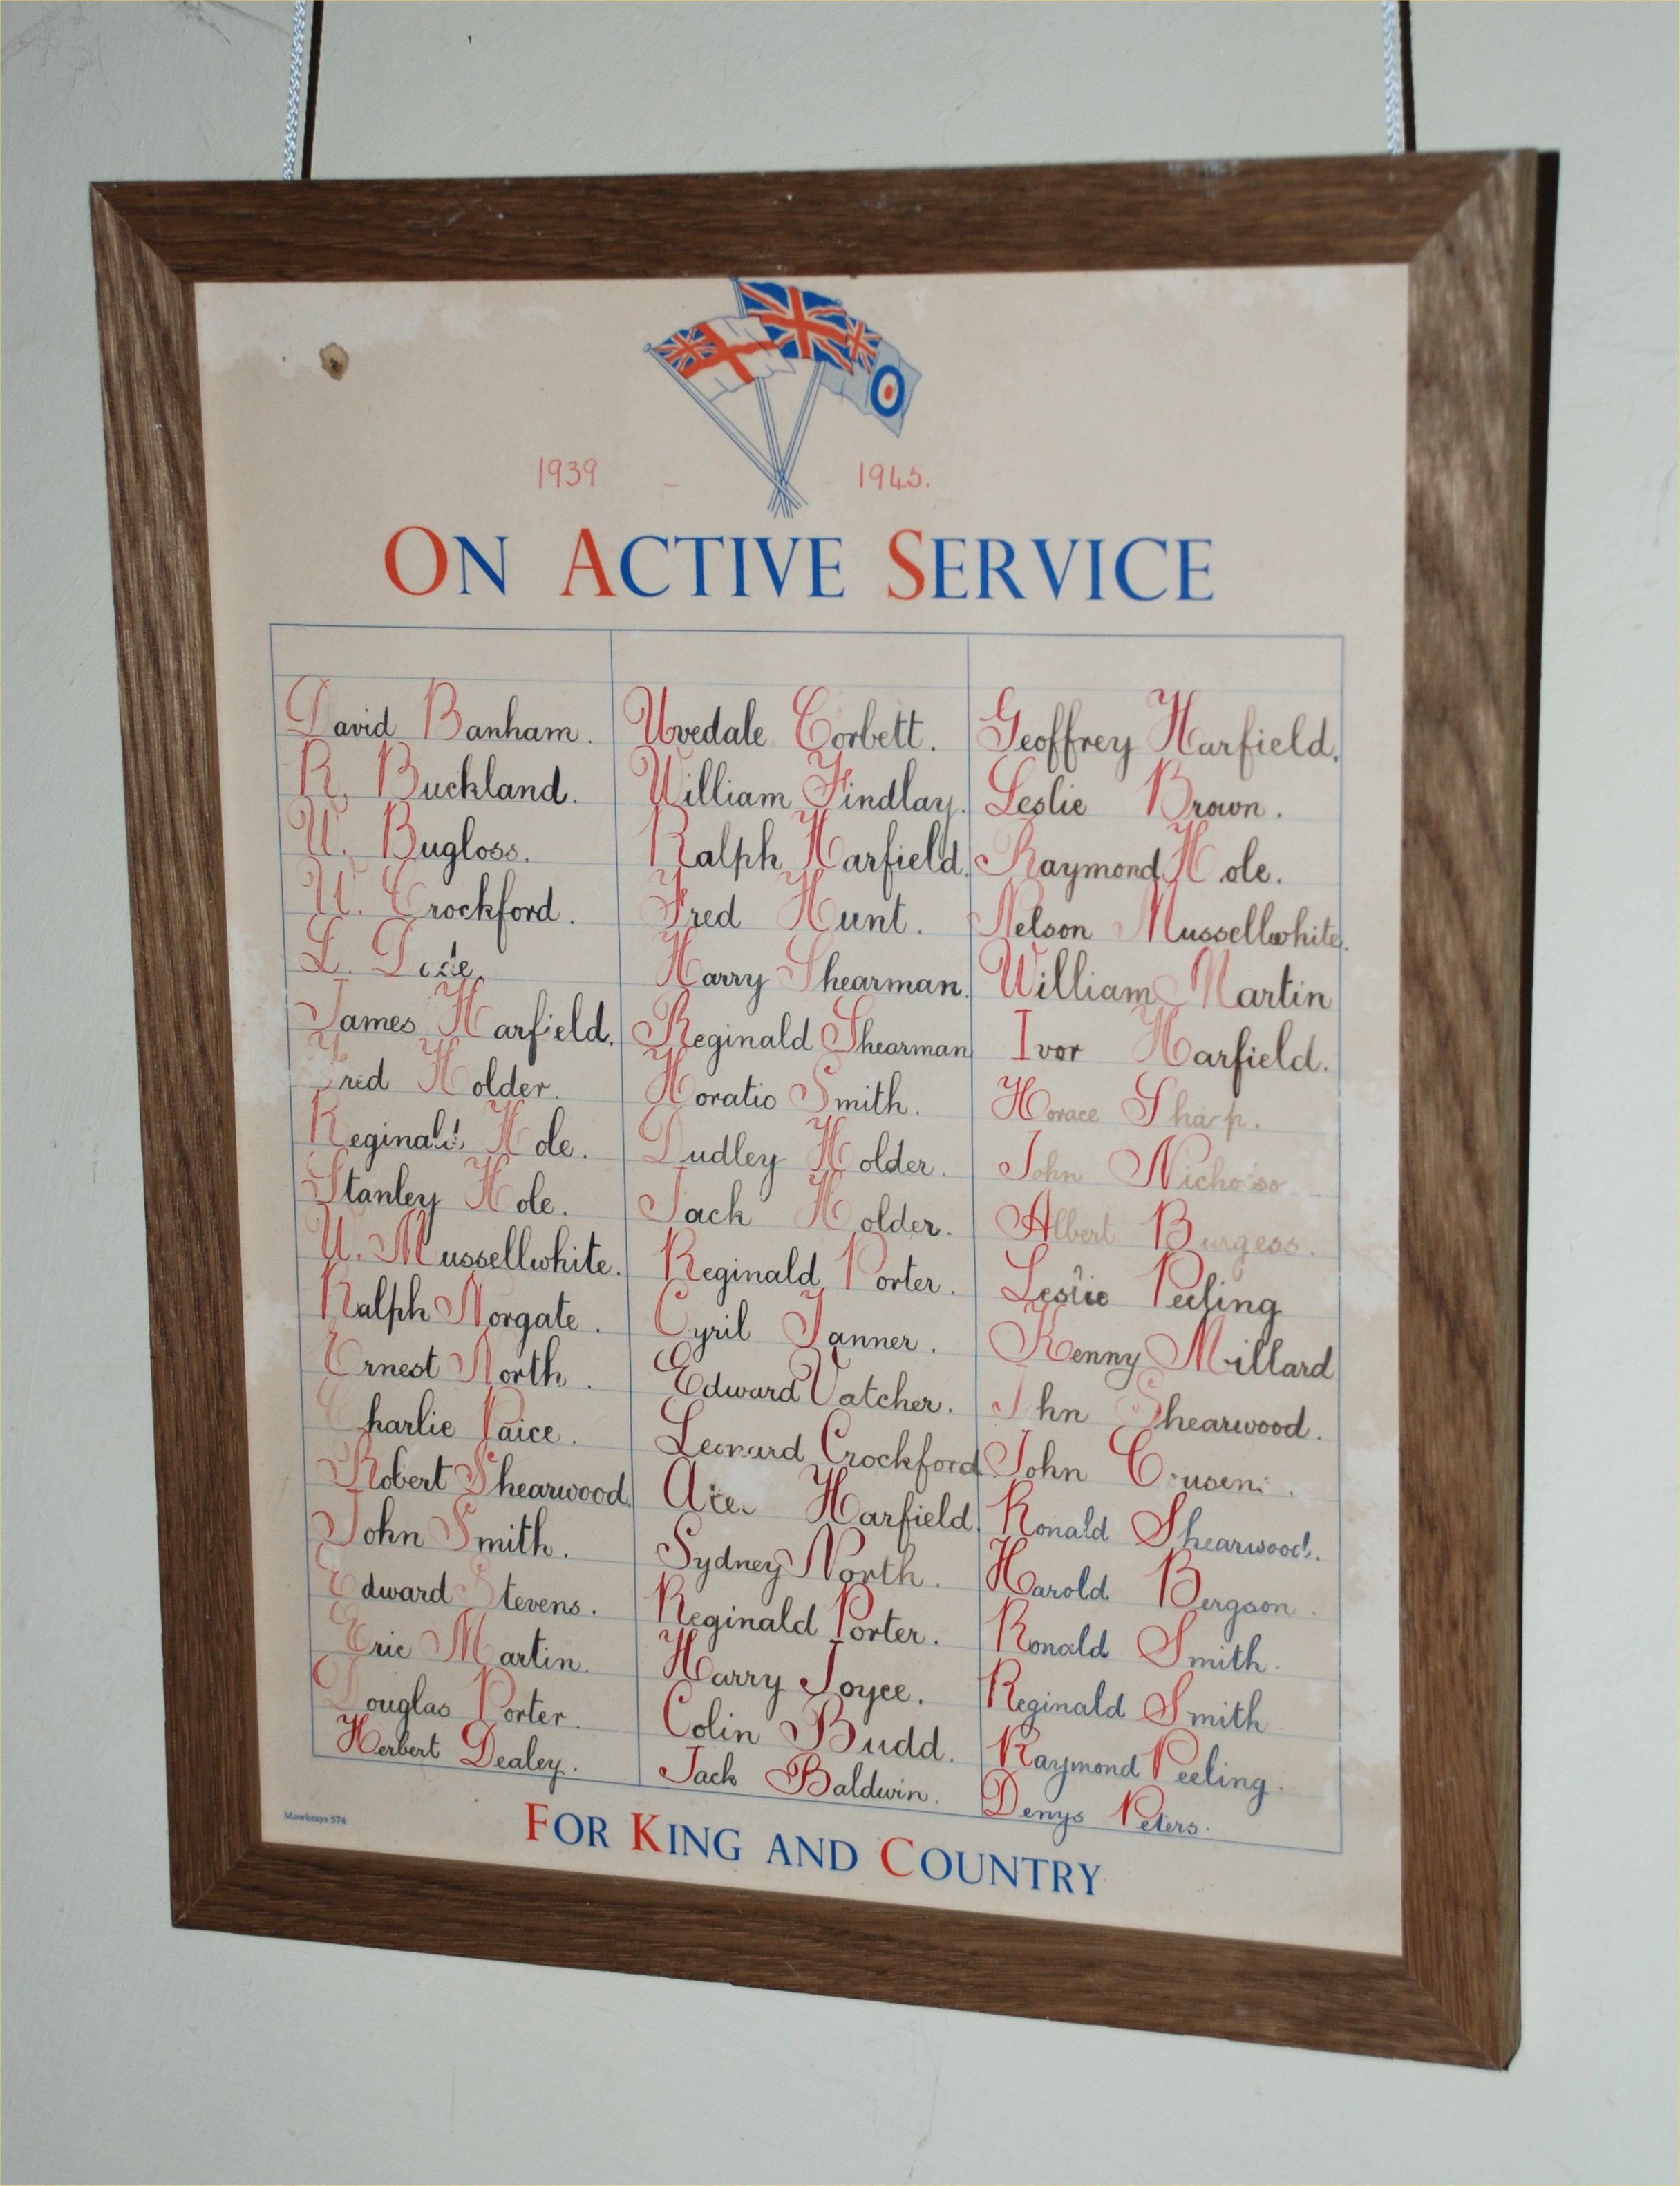 1939 - 1945.
ON ACTIVE SERVICE
David Banham.
R. Buckland.
W. Bugloss.
W. Crockford.
L.
James Harfield.
Fred Holder.
Reginald Hole.
Stanley Hole.
W. Mussellwhite.
Ralph Norgate.
Ernest North.
Charlie Paice.
Robert Shearwood.
John Smith.
Edward Stevens.
Eric Martin.
Douglas Porter.
Herbert Dealey.
Uvedale Corbett.
William Findlay.
Ralph Harfield.
Fred Hunt.
Harry Shearman.
Reginald Shearman
Horatio Smith.
Dudley Holder.
Jack Holder.
Reginald Porter.
Cyril Tanner.
Edward Vatcher.
Leonard Crockford
Harfield.
Sydney North.
Reginald Porter.
Harry Joyce.
Colin Budd.
Jack Baldwin.
Geoffrey Harfield.
Leslie Brown.
Raymond Hole.
Nelson Mussellwhite.
William Martin
Ivor Harfield.
Horace Sharp.
John
Albert Burgess.
Leslie Peeling
Kenny Millard
John Shearwood.
John
Ronald Shearwood.
Harold Bergson.
Ronald Smith.
Reginald Smith
Raymond Peeling.
Denys Peters.
Mowbrays 574
FOR KING AND COUNTRY